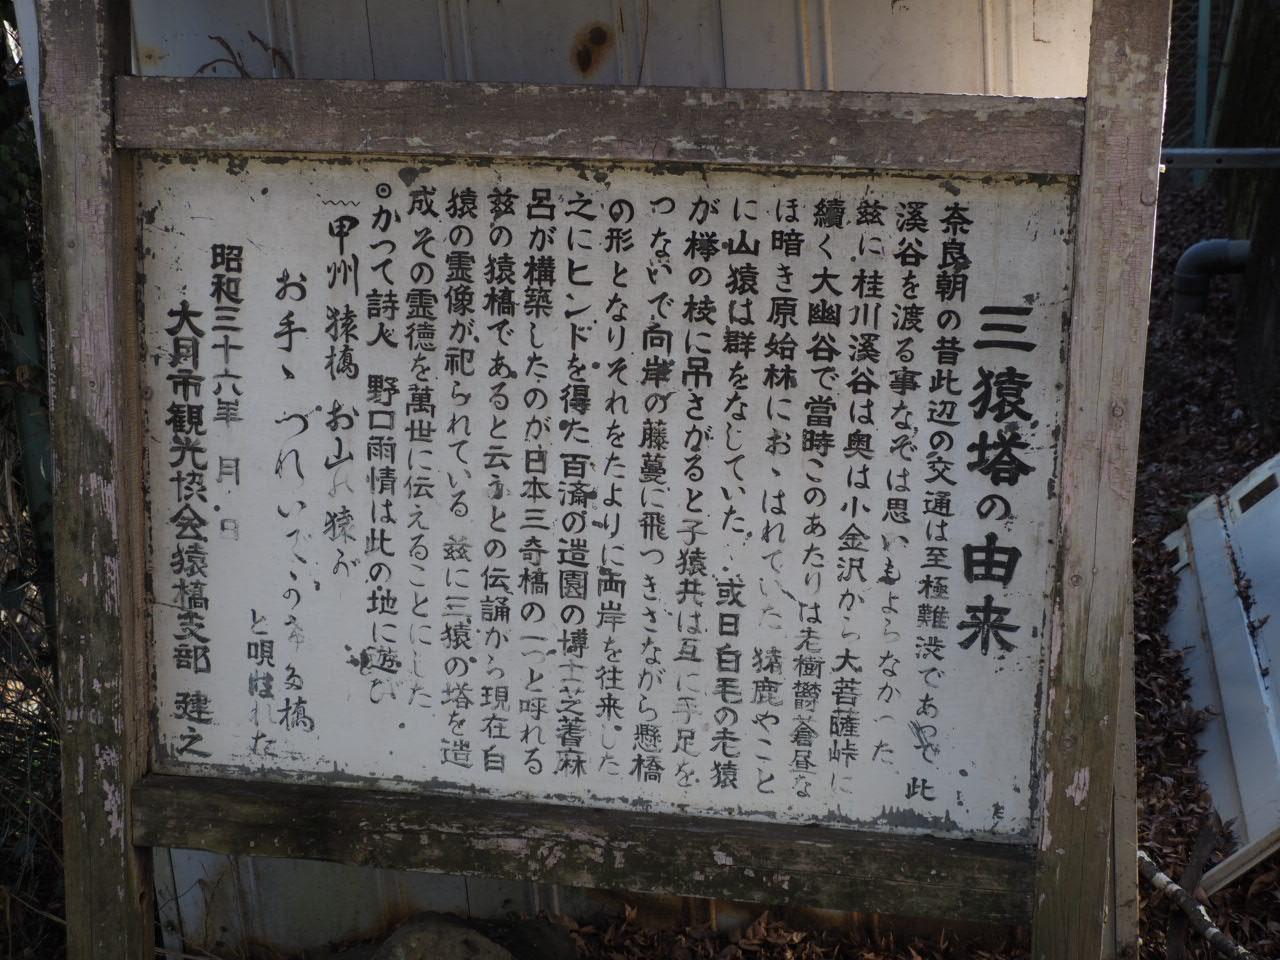 三猿塔の由来
奈良朝の昔此辺の交通は至極難渋であつて此
溪谷を渡る事なぞは思いもよらなかった
玆に桂川溪谷は奥は小金沢から大菩薩峠に
續く大幽谷で當時このあたりは老樹欝蒼昼な
ほ暗き原始林におゝはれていた 猿鹿やこと
に山猿は群をなしていた 或日白毛の老猿
が欅の枝に吊さがると子猿共は互に手足を
つないで向岸の藤蔓に飛つきさながら懸橋
の形となりそれをたよりに両岸を往来した
之にヒンドを得た百済の造園の博士芝耆麻
呂が構築したのが日本三奇橋の一つと呼れる
玆の猿橋であると云うとの伝誦から現在白
猿の霊像が祀られている 玆に三猿の塔を造
成その霊徳を萬世に伝えることにした
◎かつて詩人 野口雨情は此の地に遊び
甲州猿橋 お山の猿が
お手ゝづれいで
橋
と唄はれた
昭和三十六年 月 日
大月市観光協会猿橋支部 建之